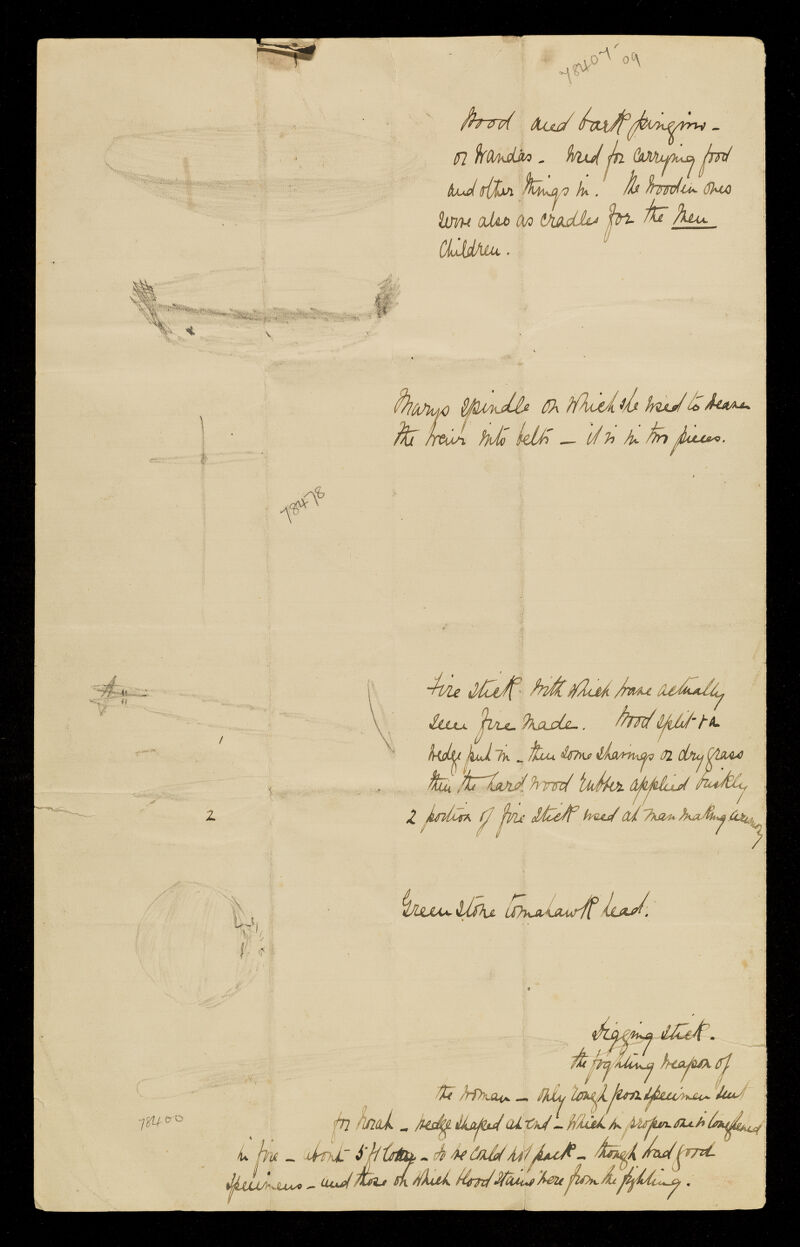 78407 09
Wood and bark pinginn -
or Wandas - Used for carrying food
and other things in. The Wooden ones
were also as cradles for the Men
Children.
Marys spindle on which she used to weave
the into belts - it is in two pieces.
78478
Fire stick With which have actually
seen fire made. Wood split + a
wedge put in - then some shavings or dry grass
then the hard wood rubber applied briskly
1
2
2 portion of fire stick used at man making ceremony
Green stone tomahawk head.
Digging stick.
the fighting weapon of
the woman - only rough poor specimen sent
for Norah - wedge shaped at end - which in proper one is toughened
78400
in fire - about 5 ft long - so we could not pack - though had good
specimens - and those on which blood stains were from the fighting.